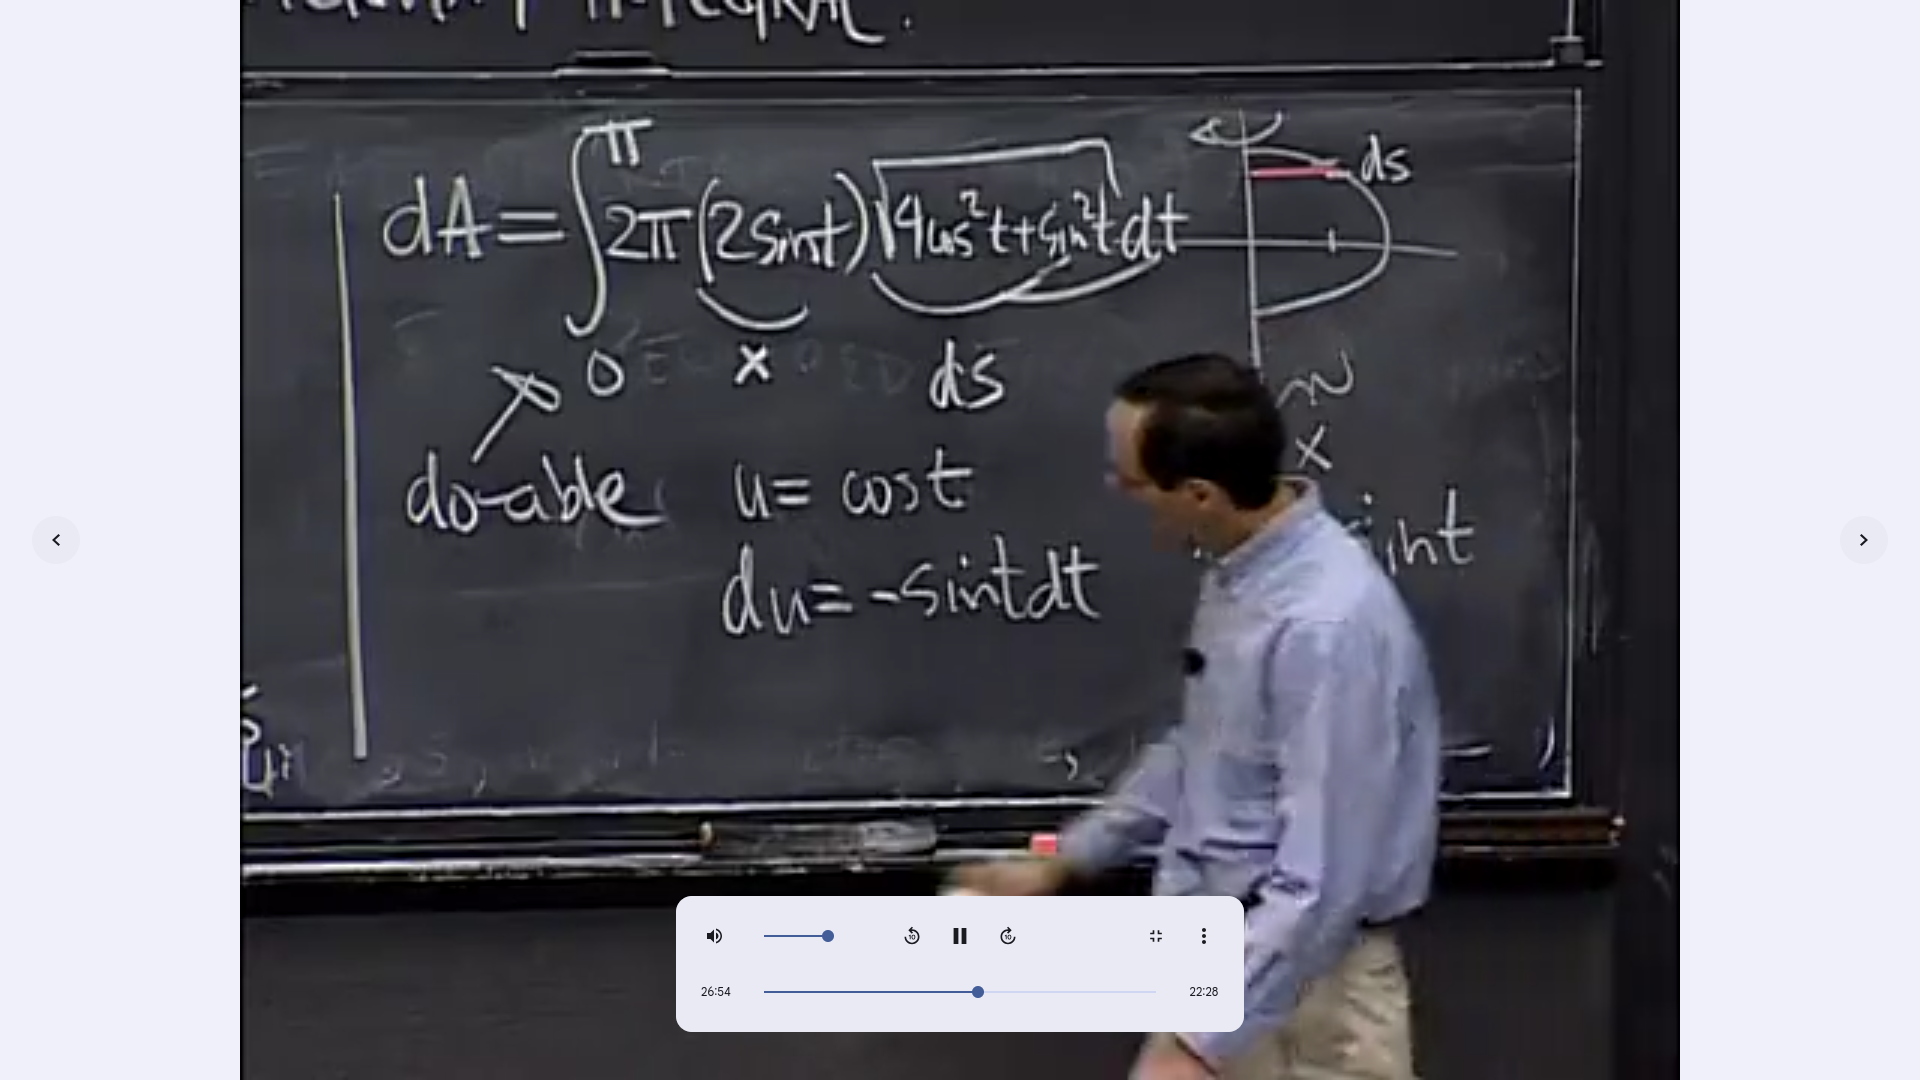 INTEGRAL.
dA = ∫₀^π 2π(2sint)√(4cos²t+sin²t) dt
ds
x
ds
do-able
u = cost
x
sint
du = -sintdt
26:54
22:28